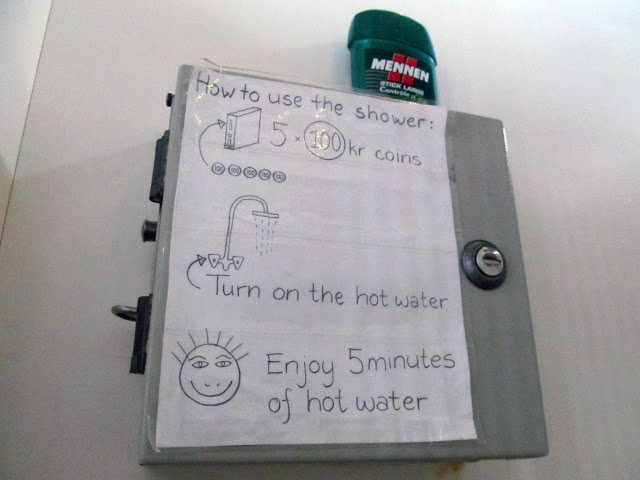 MENNEN
STICK LARGE
Contrôle
How to use the shower:
5 x 100 kr coins
100 100 100 100 100
Turn on the hot water
Enjoy 5 minutes
of hot water